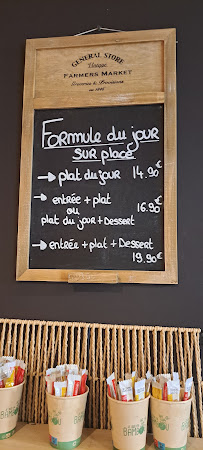 GENERAL STORE
Unique
FARMERS MARKET
Groceries & Provisions
Formule du jour
sur place
→ plat du jour 14.90€
→ entrée + plat
ou 16.90€
plat du jour + Dessert
→ entrée + plat + Dessert
19.90€
BAMBOU